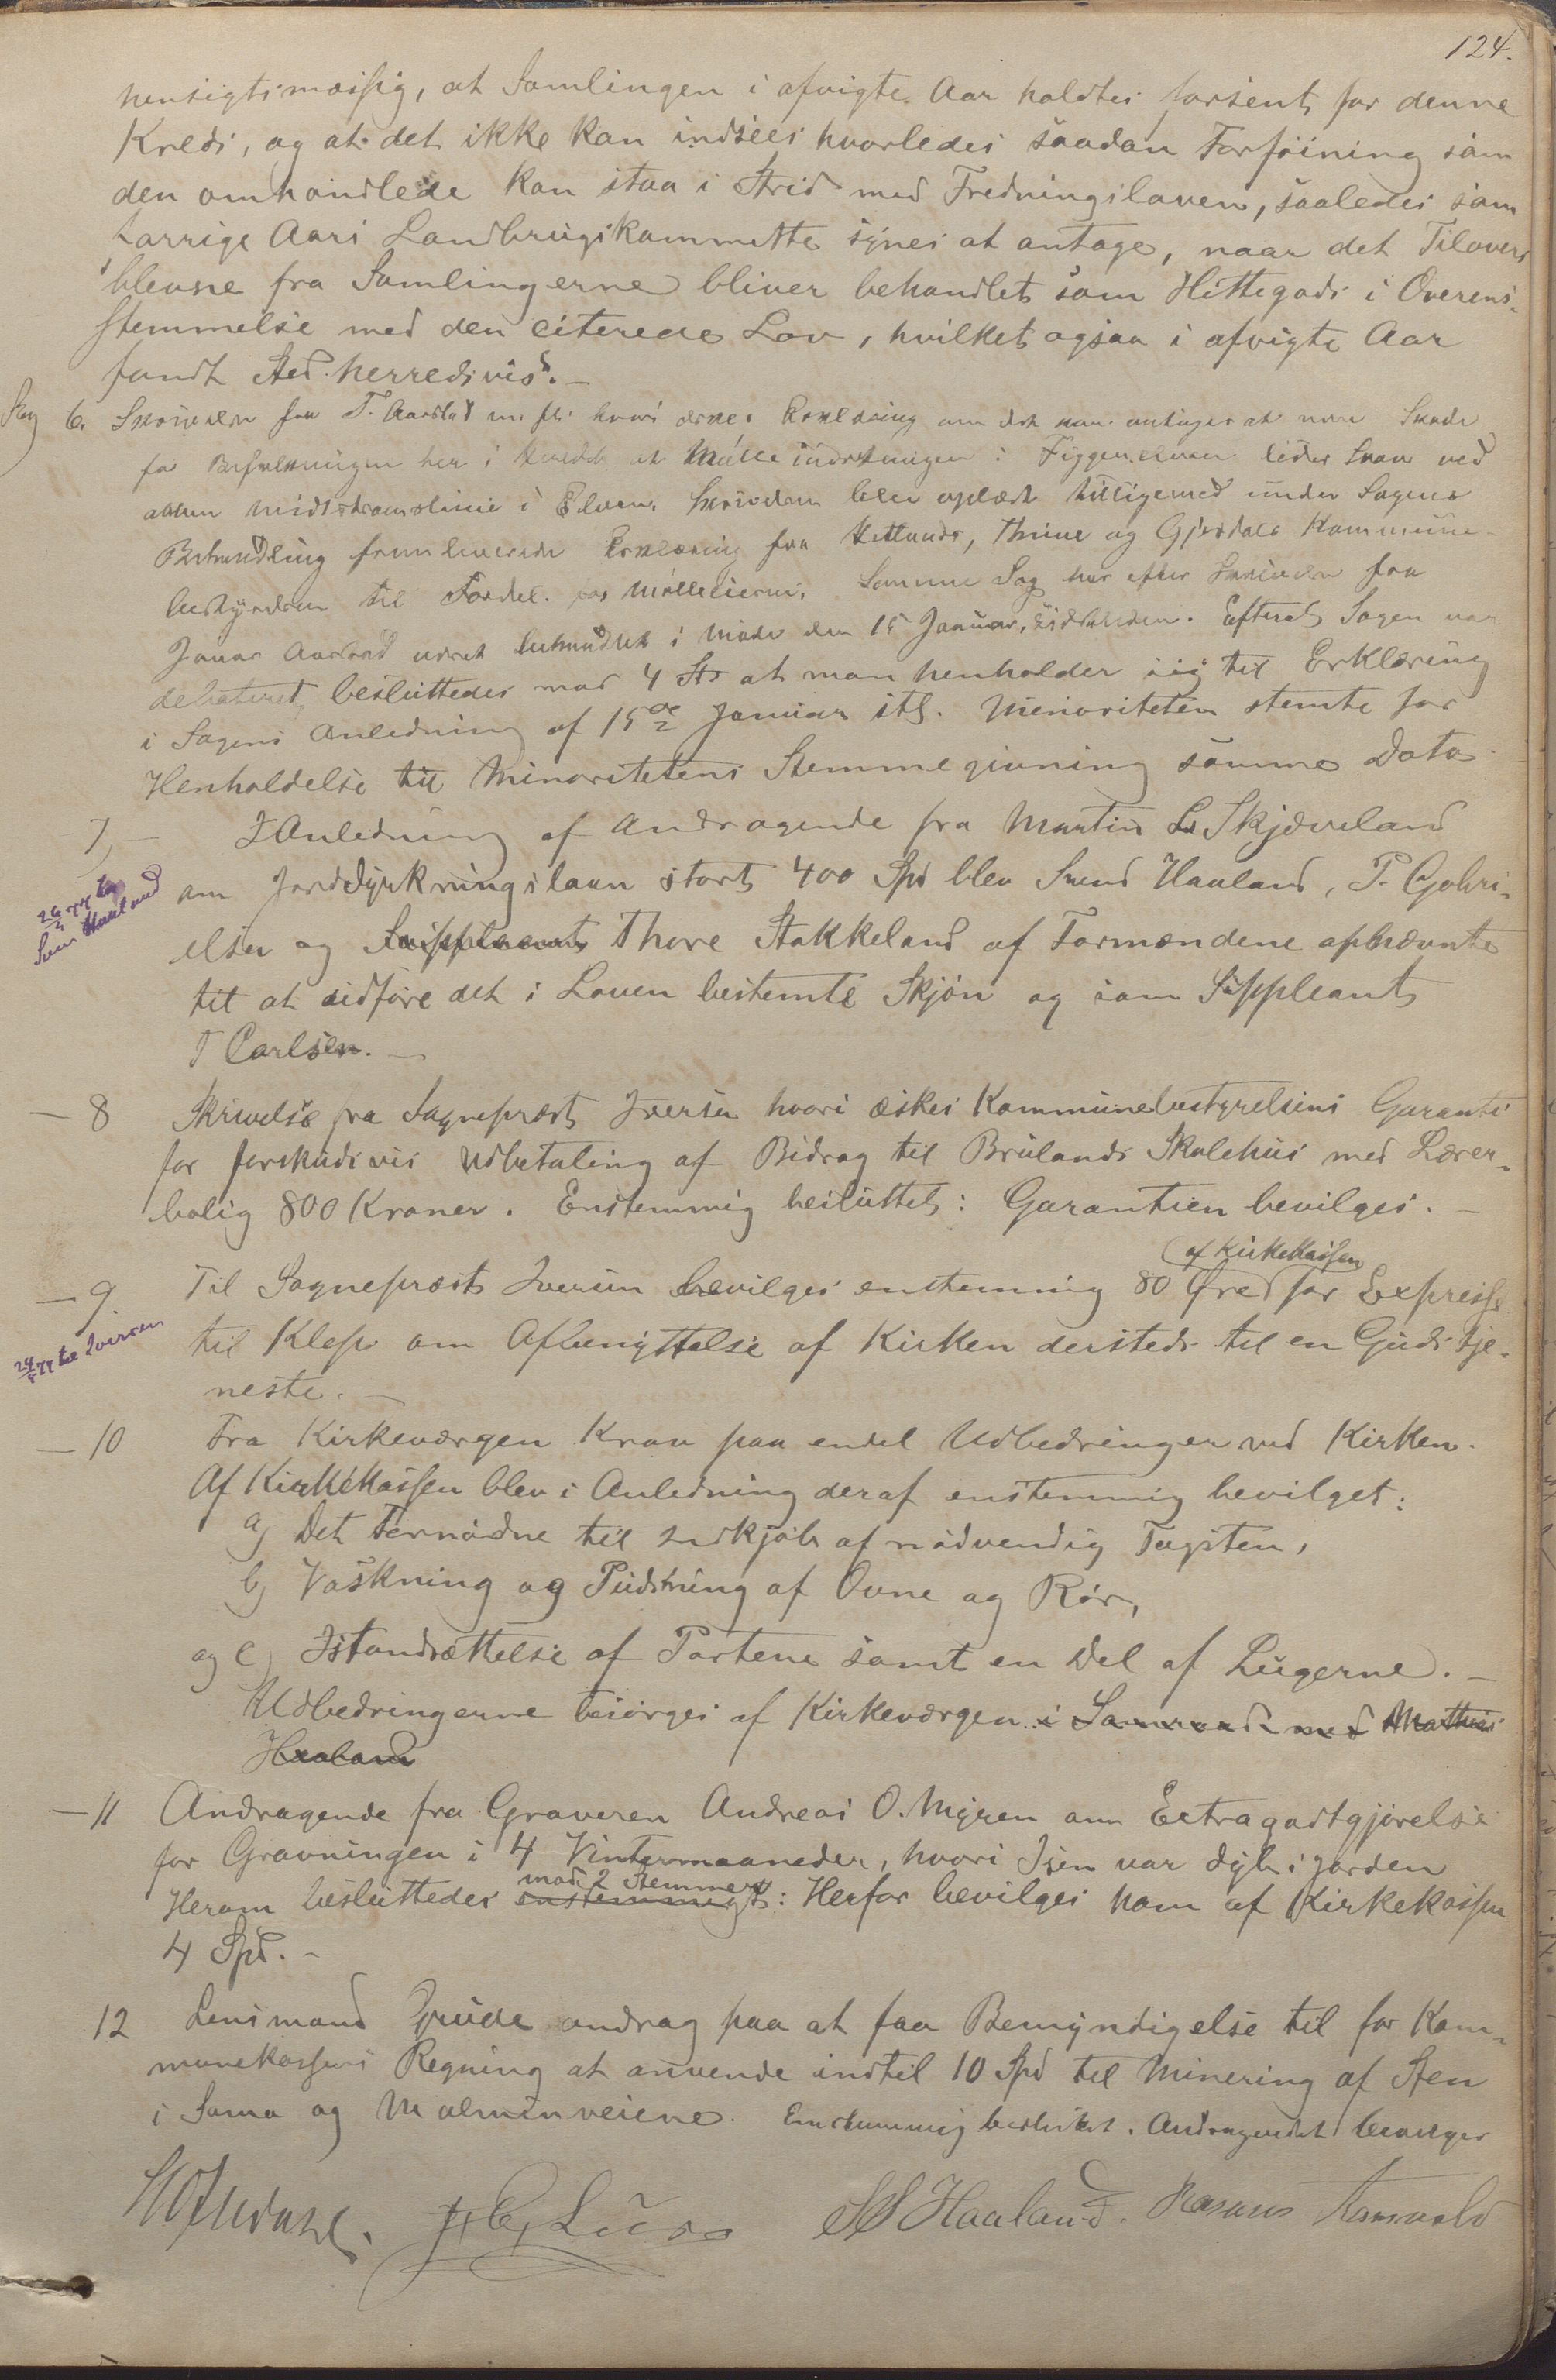 124.
hensigtsmæssig, at Samlingen i afvigte Aar holdtes forsent for denne
Kreds, og at det ikke kan indsees hvorledes saadan Forføining som
den omhandlede kan staa i Strid med Fredningsloven, saaledes som
forrige Aars Landbrugskommitte synes at antage, naar det Tilovers
blevne fra Samlingerne bliver behandlet som Hittegods i Overens-
stemmelse med den citerede Lov, hvilket ogsaa i afvigte Aar
fandt Sted herredsvis. —
Sag 6. Skrivelse fra T. Aarstad m. fl. hvori æskes Erklæring om det kan antages at være Skade
for Befolkningen her i Herredet at Mølleindretningen i Figgenelven lider Skade ved
aaben Midtstrømslinie i Elven. Skrivelsen blev oplæst tilligemed under Sagens
Behandling fremleverede Erklæring fra Hetlands, Thime og Gjesdals Kommune-
bestyrelser til Fordel for Mølleeierne. Samme Sag har efter Skrivelse fra
Jonas Aarstad været behandlet i Møde den 15 Januar sidstleden. Efterat Sagen var
debateret, besluttedes mod 4 St. at man henholder sig til Erklæring
i Sagens Anledning af 15de Januar stl. Minoriteten stemte for
Henholdelse til Minoritetens Stemmegivning samme Dato
7, — I Anledning af Andragende fra Martin L Skjæveland
om Jorddyrkningslaan stort 400 Spd blev Svend Haaland, P. Gabri-
26/2 77 til
Sven Haaland
elsen og Suppleant Thore Stokkeland af Formændene opnævnte
til at udføre det i Loven bestemte Skjøn og som Suppleant
T Carlsen. —
— 8 Skrivelse fra Sognepræst Iversen hvori æskes Kommunebestyrelsens Garanti
for forskudsvis Udbetaling af Bidrag til Brulands Skolehus med Lærer-
bolig 800 Kroner. Enstemmig besluttet: Garantien bevilges. —
af Kirkekassen
— 9. Til Sognepræst Iversen bevilges enstemmig 80 Øre for Expresse
til Klep om Afbenyttelse af Kirken dersteds til en Gudstje-
77 til Iversen
neste. —
— 10 Fra Kirkeværgen Krav paa endel Udbedringer ved Kirken.
Af Kirkekassen blev i Anledning deraf enstemmig bevilget:
a) Det Fornødne til Indkjøb af nødvendig Tagsten,
b) Vaskning og Pudsning af Ovne og Rør,
og c) Istandsættelse af Portene samt en Del af Lugerne. —
Udbedringerne besørges af Kirkeværgen i Samraad med Mathias
Haaland
— 11 Andragende fra Graveren Andreas O. Myren om Extragodtgjørelse
for Gravningen i 4 Vintermaaneder, hvori Isen var dyb i Jorden
mod 2 Stemmer
Herom besluttedes enstemmigt: Herfor bevilges ham af Kirkekassen
4 Spd. —
12 Lensmand Grude androg paa at faa Bemyndigelse til for Kom-
munekassens Regning at anvende indtil 10 Spd til Minering af Sten
i Soma og Malminveiene. Enstemmig besluttet. Andragendet bevilges
Haaland. Rasmus